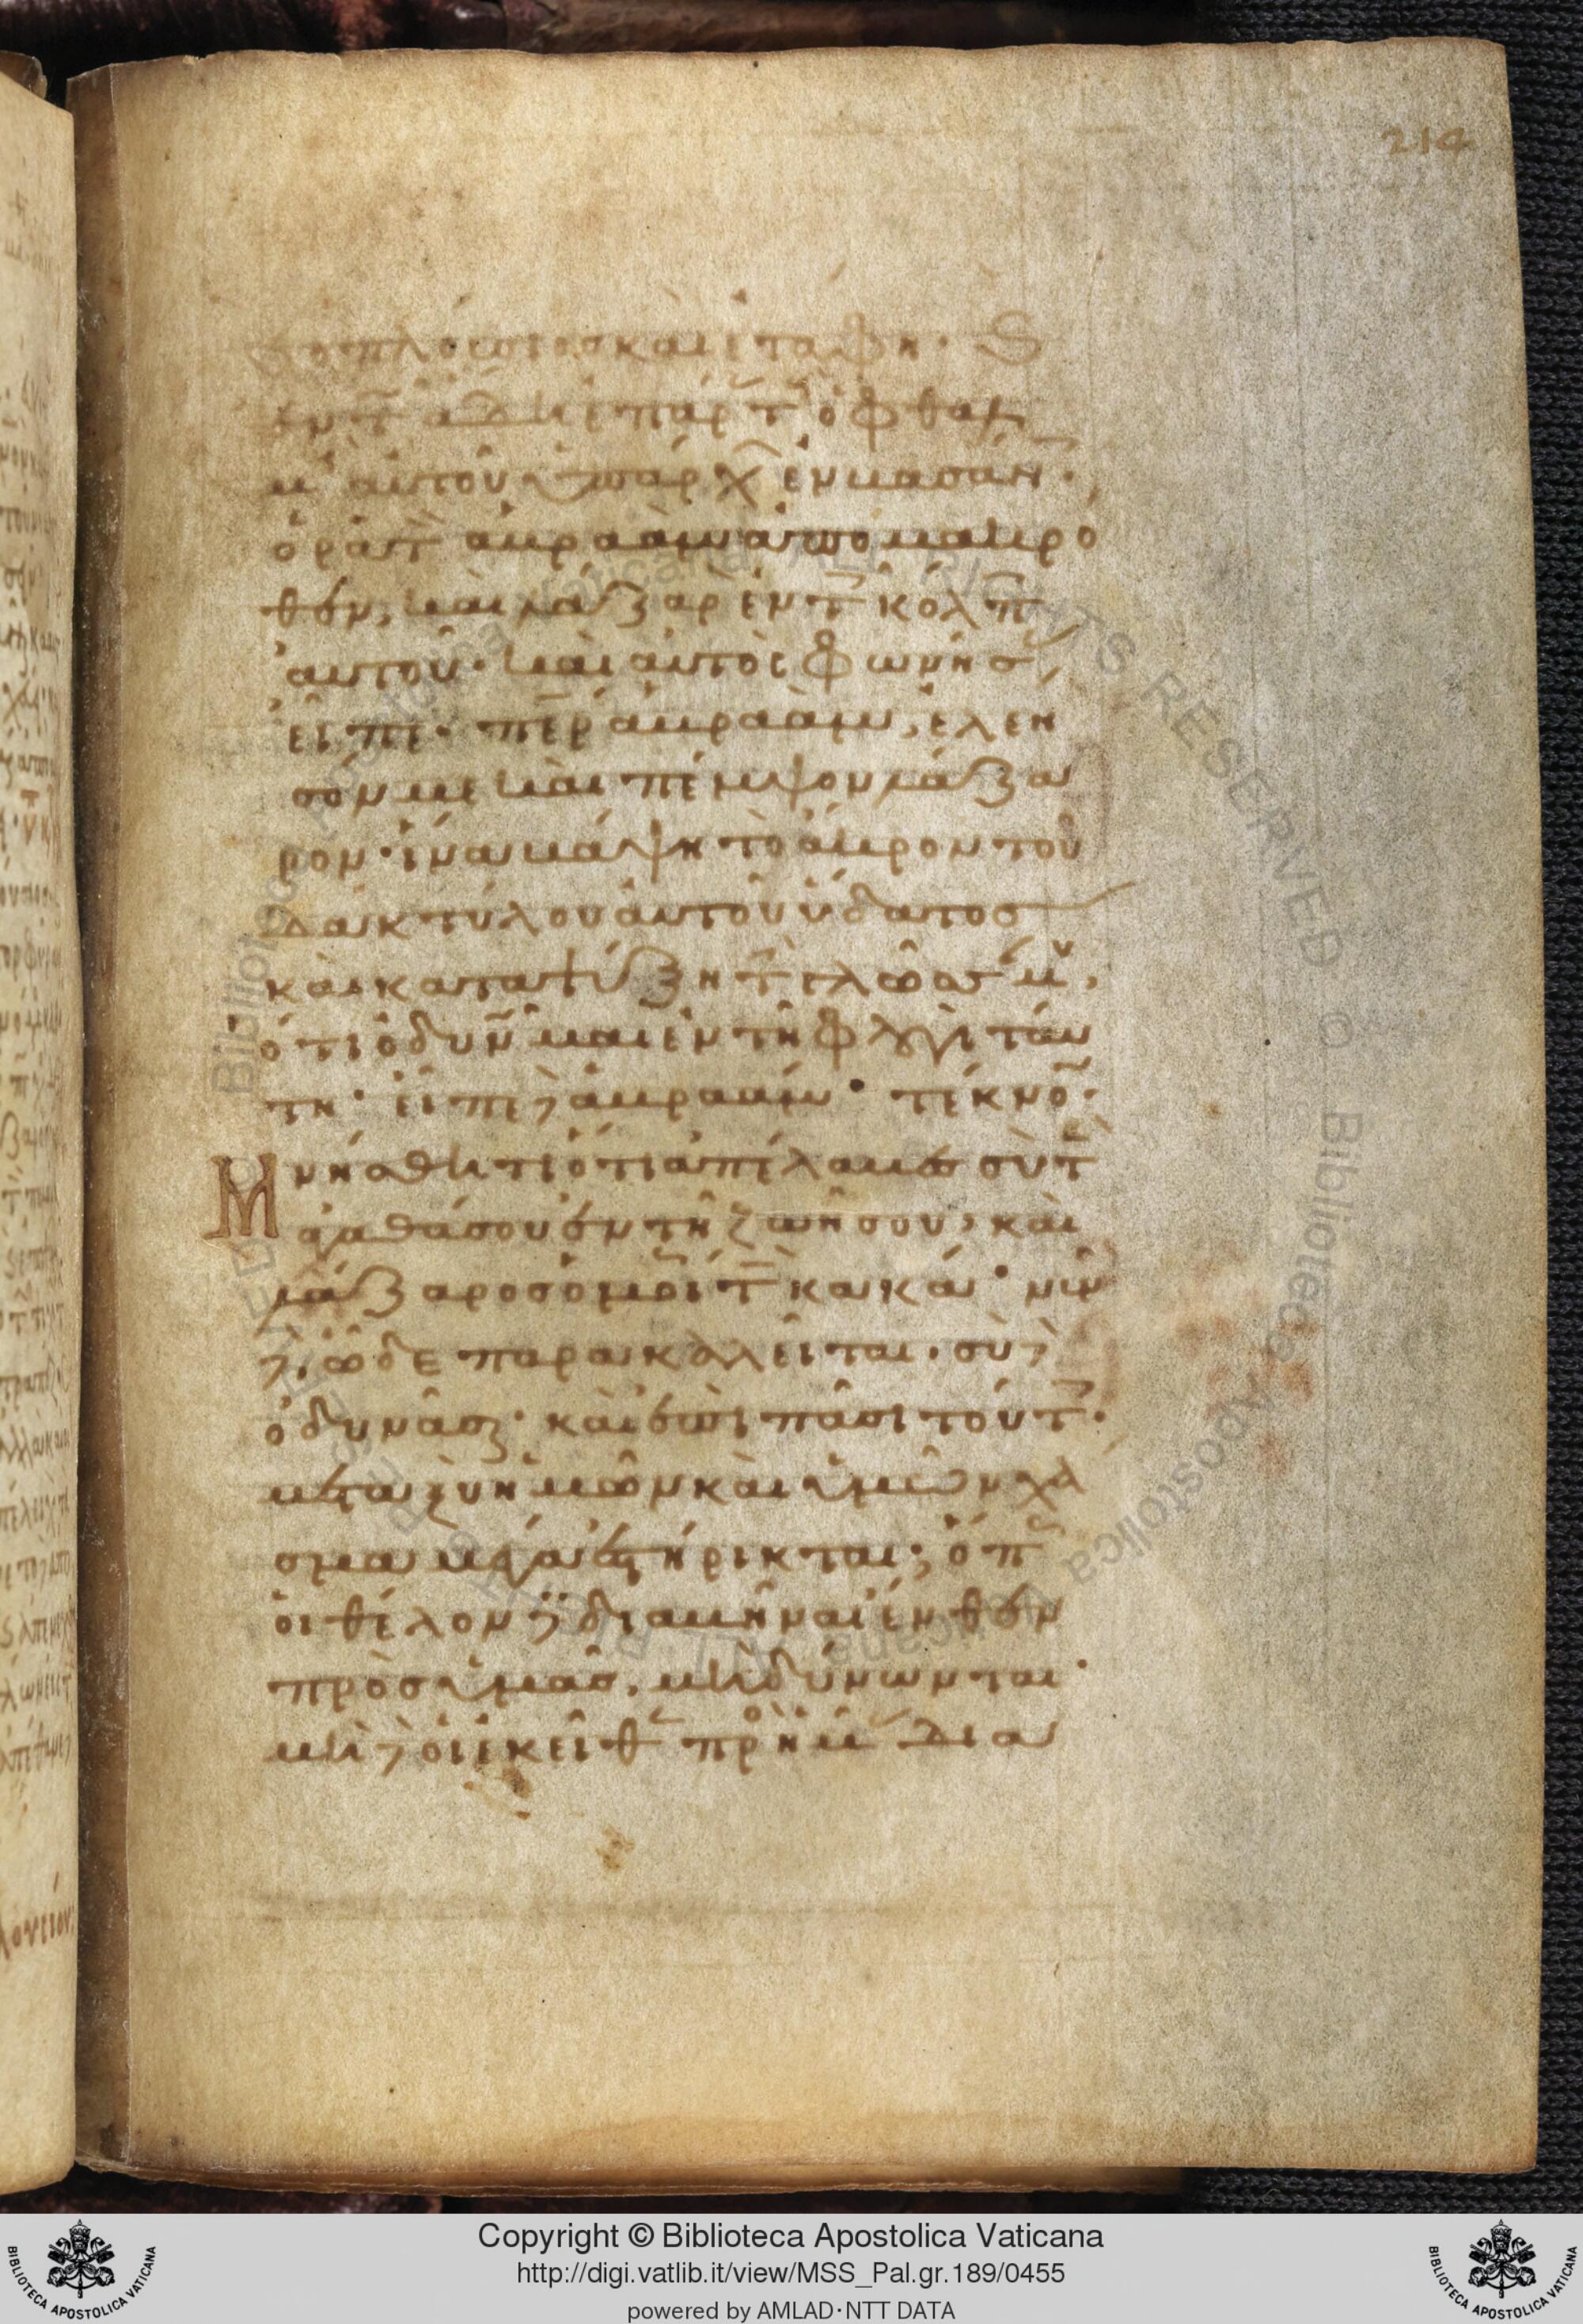 214
ὁ πλούσιος καὶ ἐτάφη· ϗ
ἐν τ ἅδη ἐπάρ τ ὀφθαλ
μ αὐτοῦ ὑπάρχ ἐν βασάν·
ὁρᾶ τ ἀβραὰμ ἀπο μακρο
θεν, καὶ λάζαρ ἐν τ κόλπ
αὐτοῦ· καὶ αὐτὸς φωνήσ
εἶπε· περ ἀβραὰμ, ἐλέη
σόν με καὶ πέμψον λάζα
ρον· ἵνα βάψη τὸ ἄκρον τοῦ
δακτύλου αὐτοῦ ὕδατος
καὶ καταψύξη τ γλῶσσ μου,
ὅτι ὀδυνῶμαι ἐν τῆ φλογὶ ταύ
τη· εἶπε δὲ ἀβραάμ· τέκνον·
Μνήσθητι ὅτι ἀπέλαβες σὺ τ
ἀγαθά σου ἐν τῆ ζωῆ σου, καὶ
λάζαρος ὁμοί τ κακά· νῦν
δὲ ὧδε παρακαλεῖται. σὺ δὲ
ὀδυνᾶσαι· καὶ ἐπὶ πᾶσι τούτ·
μεταξὺ ἡμῶν καὶ ὑμῶν χά
σμα μέγα ἐστήρικται· ὅπ
οἱ θέλοντες διαβῆναι ἔνθεν
πρὸς ὑμᾶς, μὴ δύνωνται·
μὴ δὲ οἱ ἐκεῖθ πρ ἡμ δια
Copyright © Biblioteca Apostolica Vaticana
http://digi.vatlib.it/view/MSS_Pal.gr.189/0455
powered by AMLAD·NTT DATA